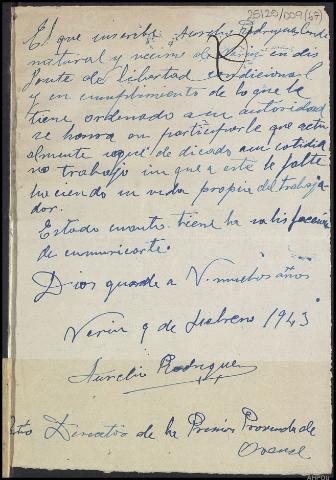 25120/009(67)
El que suscribe Aurelio Rodriguez Conde
natural y vecino de Verin en dis
frute de libertad condicional
y en cumplimiento de lo que la
tiene ordenado su autoridad
se honra en participarle que actu
almente sigue dedicado a su cotidia
no trabajo sin que a este le falte
haciendo su vida propia del trabaja
dor.
Estado cuanto tiene la satisfaccion
de comunicarte.
Dios guarde a V. muchos años
Verin 9 de febrero 1943
Aurelio Rodriguez
Director de la Prision Provincial de
Orense